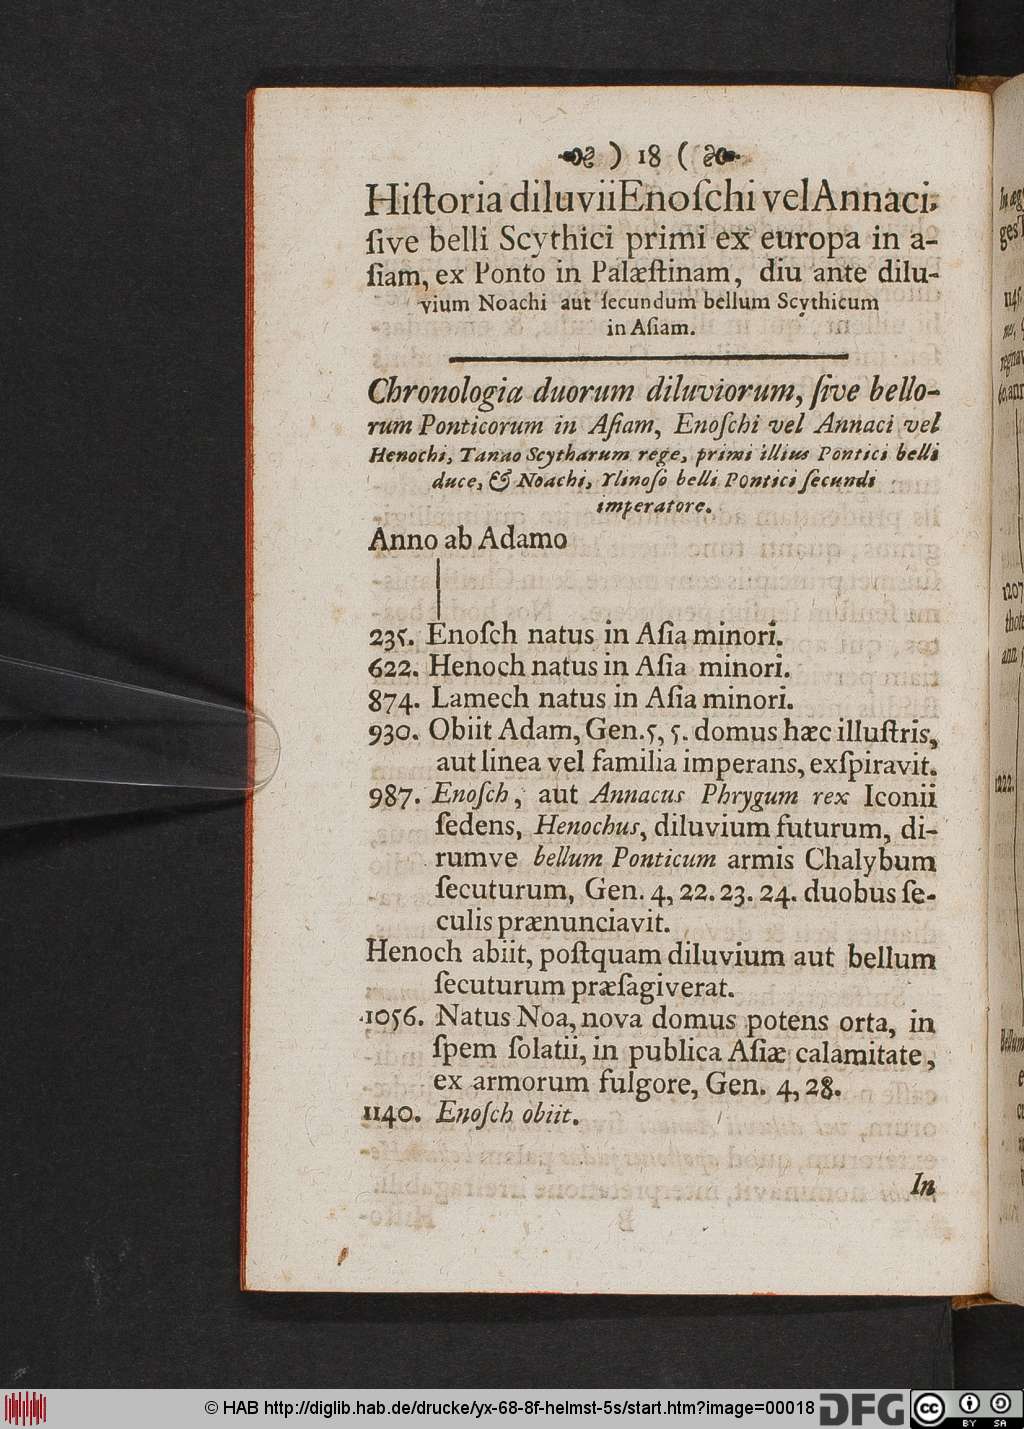 ) 18 (
Hiſtoria diluvii Enoſchi vel Annaci,
ſive belli Scythici primi ex europa in a-
ſiam, ex Ponto in Palæſtinam, diu ante dilu-
vium Noachi aut ſecundum bellum Scythicum
in Aſiam.
Chronologia duorum diluviorum, ſive bello-
rum Ponticorum in Aſiam, Enoſchi vel Annaci vel
Henochi, Tanao Scytharum rege, primi illius Pontici belli
duce, & Noachi, Ylinoſo belli Pontici ſecundi
imperatore.
Anno ab Adamo
235. Enoſch natus in Aſia minori.
622. Henoch natus in Aſia minori.
874. Lamech natus in Aſia minori.
930. Obiit Adam, Gen. 5, 5. domus hæc illuſtris,
aut linea vel familia imperans, exſpiravit.
987. Enoſch, aut Annacus Phrygum rex Iconii
ſedens, Henochus, diluvium futurum, di-
rumve bellum Ponticum armis Chalybum
ſecuturum, Gen. 4, 22. 23. 24. duobus ſe-
culis prænunciavit.
Henoch abiit, poſtquam diluvium aut bellum
ſecuturum præſagiverat.
1056. Natus Noa, nova domus potens orta, in
ſpem ſolatii, in publica Aſiæ calamitate,
ex armorum fulgore, Gen. 4, 28.
1140. Enoſch obiit.
In
© HAB http://diglib.hab.de/drucke/yx-68-8f-helmst-5s/start.htm?image=00018
DFG
cc BY SA